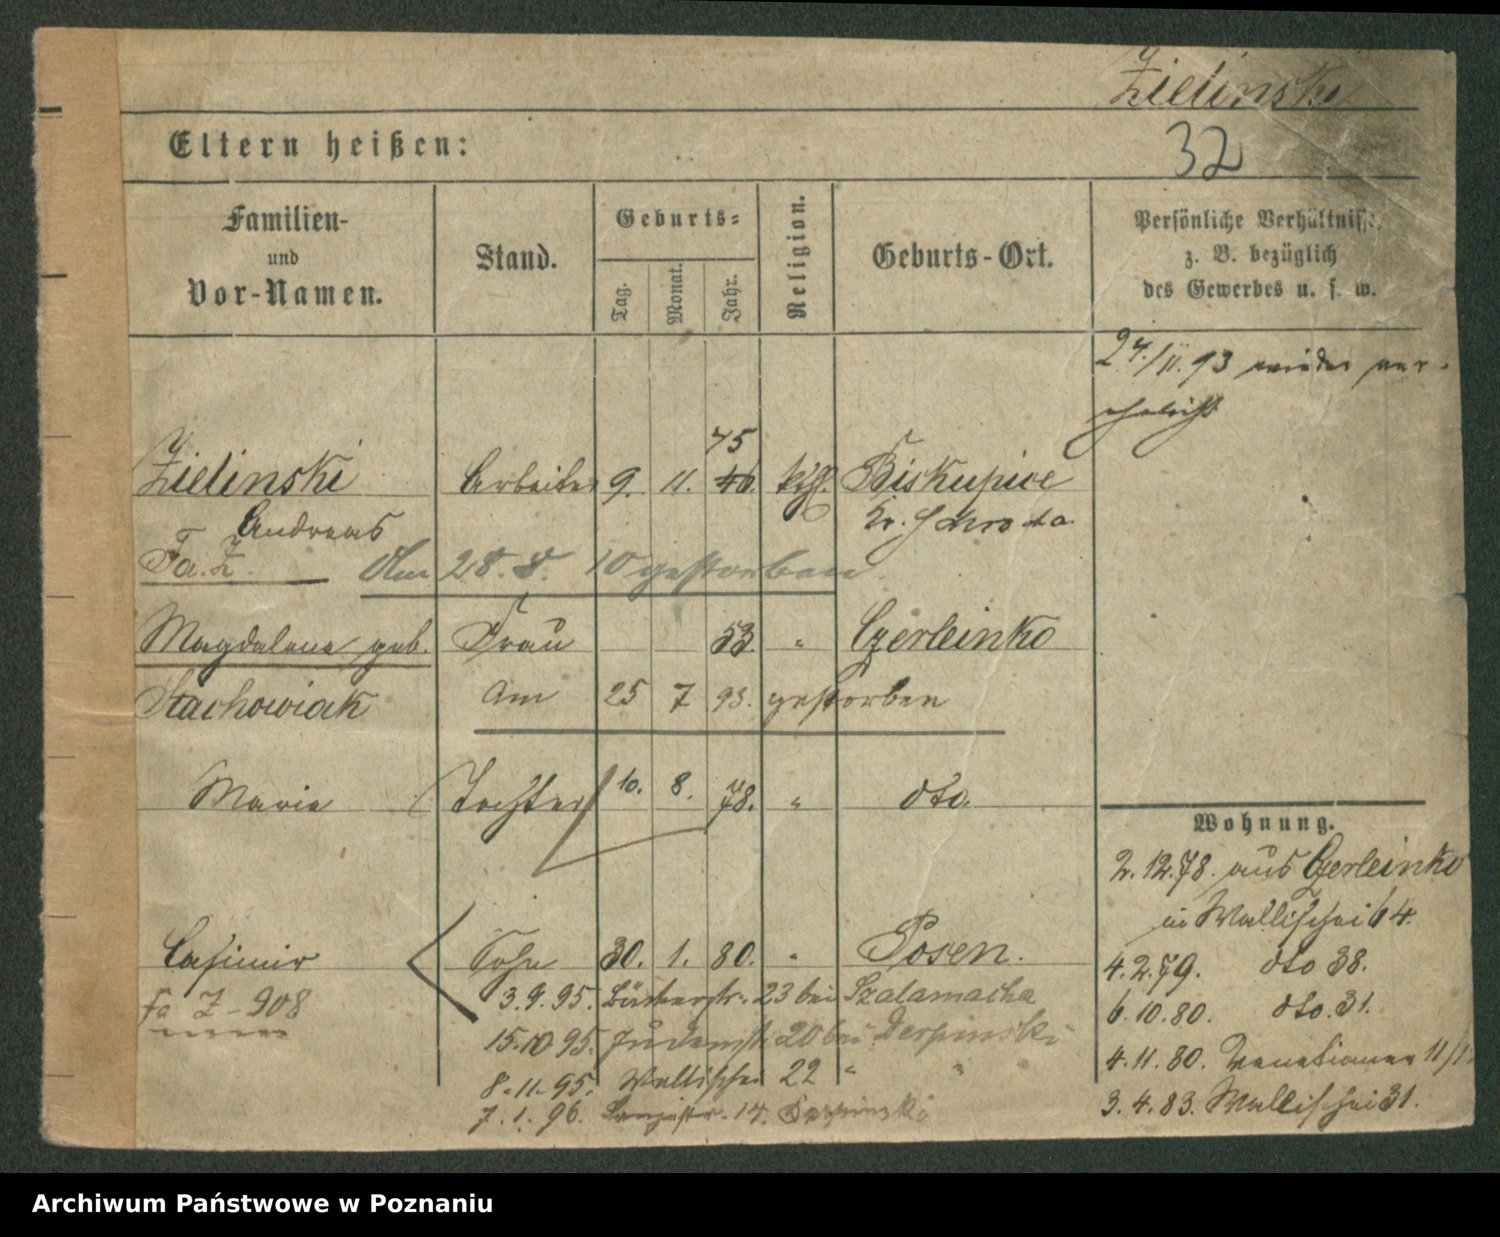 Zielinski
Eltern heißen:
32
Familien-
und
Vor-Namen.
Stand.
Geburts-
Tag.
Monat.
Jahr.
Religion.
Geburts-Ort.
Persönliche Verhältnisse,
z. B. bezüglich
des Gewerbes u. s. w.
24./11.93 wieder ver-
ehelicht
75
Zielinski Arbeiter 9. 11. 46. kth. Biskupice
Andreas Kr. Schroda
Fa. Z. Am 28. 8. 10 gestorben
Magdalena geb. Frau 53. " Czerleinko
Stachowiak am 25 7 93. gestorben
Marie Tochter 10. 8. 78. " dto.
Casimir Sohn 30. 1. 80. " Posen.
Fa Z - 908
3.9.95. 23 bei Szalamacha
15.10.95. Judenstr. 20 bei Derpinski
8.11.95. Wallischei 22 " "
7.1.96. 17. Derpinski
Wohnung.
2.12.78. aus Czerleinko
in Wallischei 64.
4.2.79. dto 38.
6.10.80. dto. 31.
4.11.80. Venetianer 11/12
3.4.83. Wallischei 31.
Archiwum Państwowe w Poznaniu